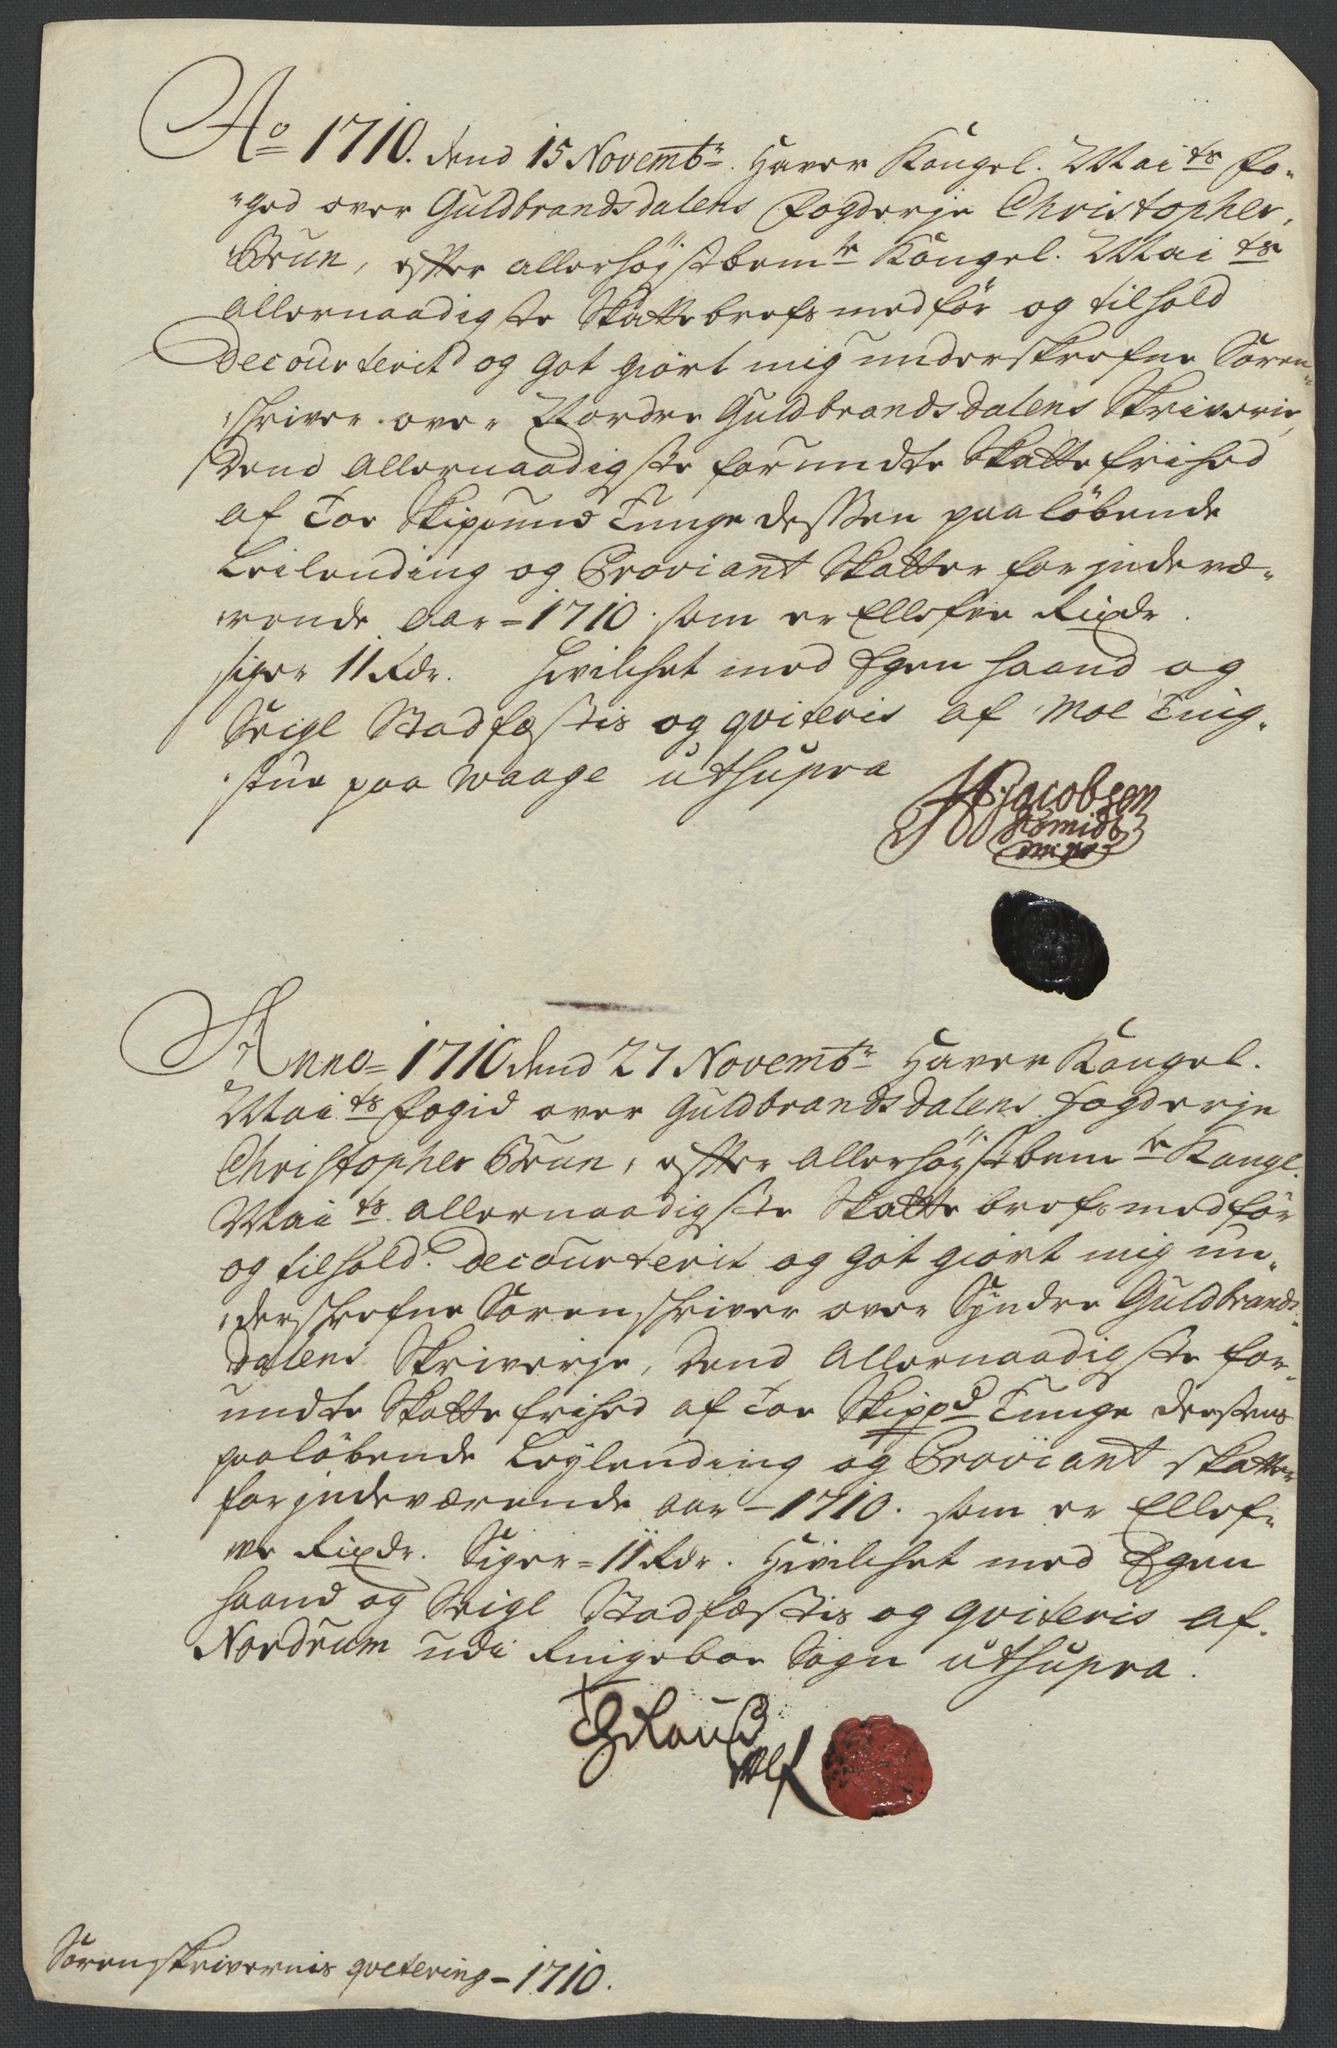 Ao 1710. dend 15 Novembr. Haver Kongel. Maits Fo-
ged over Guldbrandsdalens Fogderje Christopher
Brun, efter allerhøjstbemte Kongel. Mai ts
Allernaadigste Skattebrefs medfør og tilhold
Decourterit og got giort mig underskrefne Soren-
schriver over Nordre Guldbrandsdalens Skriverie,
Dend Allernaadigste forundte Skatte frihed
af Toe Skippund Tunge dessen paaløbende
Leilending og Proviant Skatter for jndevæ-
rende Aar - 1710. som er Ellefve Rixdr.
siger 11 Rdr. Hvilchet med Egen haand og
Seigl Stadfæstis og qviteris af Moe Ting-
stue paa Waage utsupra
Jacobsen
Schmidt
mpr
Anno = 1710 dend 27 Novembr Haver Kongel.
Mai ts Fogid over Guldbrandsdalens Fogderje
Christopher Brun, efter Allerhøjstbemte Kongl.
Mai ts. allernaadigste Skatte brefs medfør
og tilhold. Decourterit og got giort mig un-
derschrefne Sorenschriver over Syndre Guldbrands-
Dalens Skriverje, Dend Allernaadigste for-
undte Skatte frihed af Toe Skippd Tunge dessens
paaløbende Leylending og Proviant Skatter
for jndeværende Aar - 1710. som er Ellef-
ve Rixdr. Siger = 11 Rdr. Hvilchet med Egen
haand og Seigl Stadfæstis og qviteris af
Nordrum udi Ringeboe Sogn utsupra.
Sorenskrivernis qvitering - 1710.